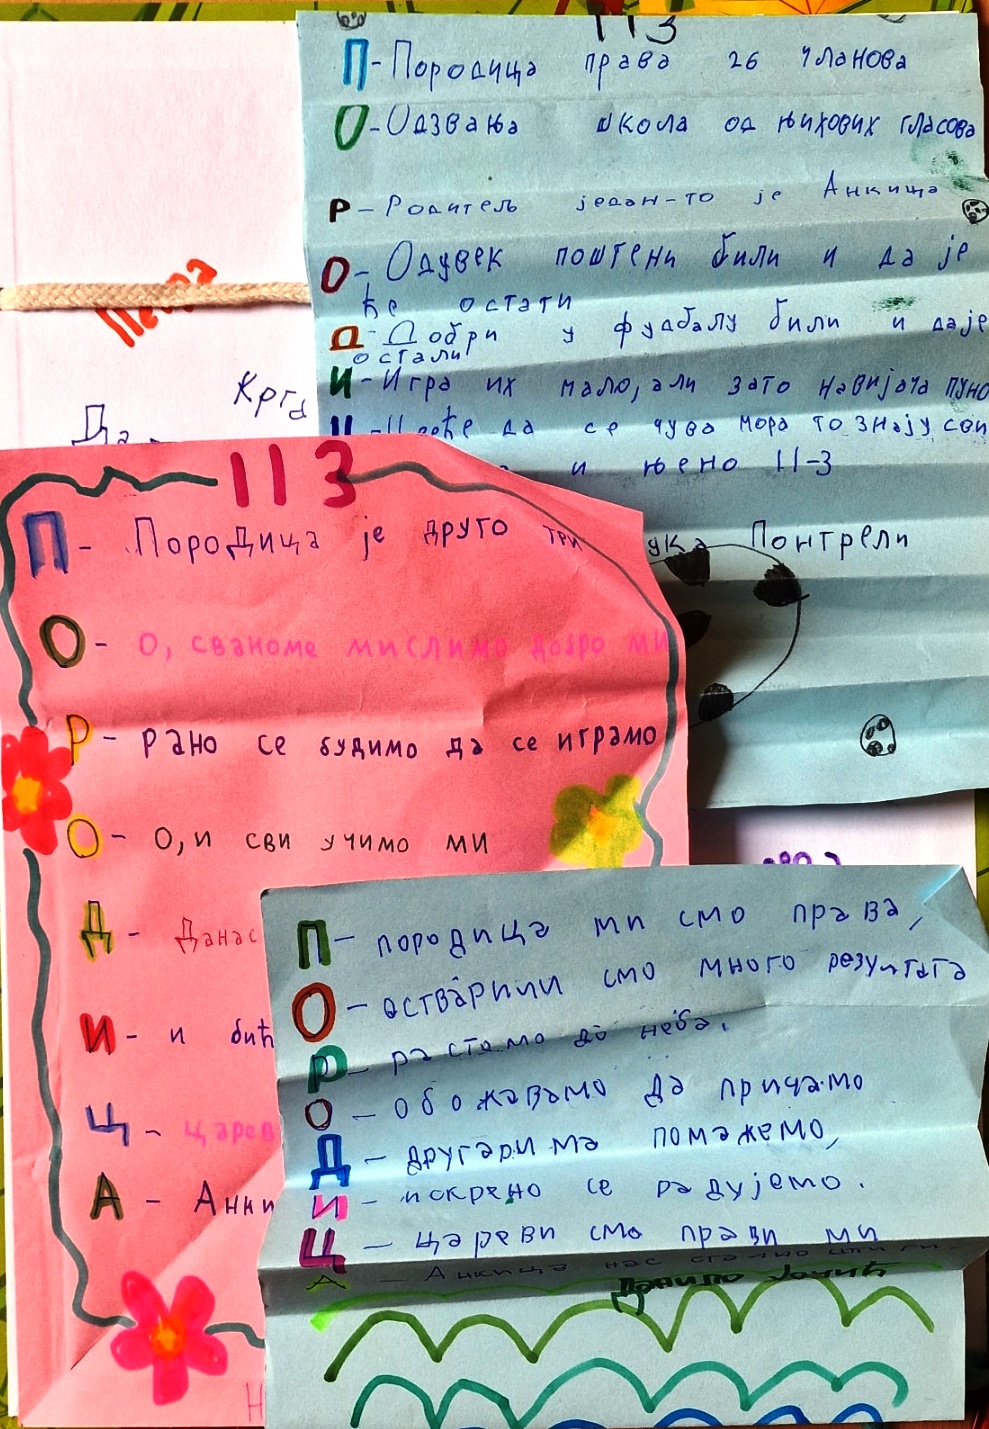 II3
П - Породица права 26 чланова
О - Одзвања школа од њихових гласова
Р - Родитељ један-то је Анкица
О - Одувек поштени били и да је
ће остати
Д - Добри у фудбалу били и даје
остали
И - Игра их мало, али зато навијача пуно
да се чува мора то знају сви
и њено II-3
Понтрели
Крга
II3
П - Породица је друго три
О - О, свакоме мислимо добро ми
Р - Рано се будимо да се играмо
О - О, и сви учимо ми
Д - Данас
И - и бић
Ц - Царев
А - Анки
П - породица ми смо права,
О - остварили смо много резултата
Р - растомо до неба.
О - обожавамо да причамо
Д - другарима помажемо,
И - искрено се радујемо.
Ц - цареви смо прави ми
А - Анкица нас